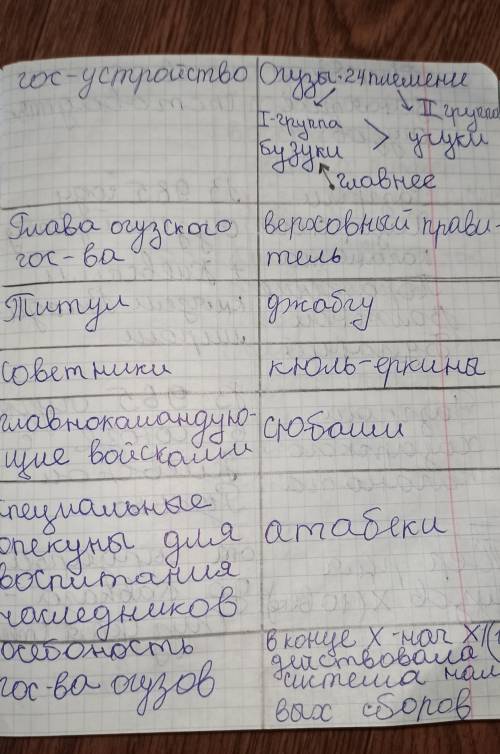 гос-устройство
Огузы-24племени
I-группа
бузуки
>
II группа
учуки
главнее
Глава огузского
гос-ва
верховный прави-
тель
Титул
джабгу
советники
кюль-еркины
главнокамандую-
щие войсками
сюбаши
специальные
опекуны для
воспитания
наследников
атабеки
особоность
гос-ва огузов
в конце X-нач XI
действовала
система нало
вых сборов